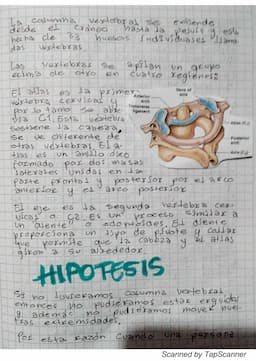 La columna vertebral se extiende
desde el cráneo hasta la pelvis y esta
hecha de 33 huesos individuales llama
das vertebras
Las vertebras se apilan un grupo
encima de otro en cuatro regiones:
El atlas es la primer
vertebra cervical y
por lo tamo se abr
via C1. Esta vertebra
sostiene la cabeza,
se ve diferente de
otras vertebras. El a-
tlas es un anillo óseo
formado por dos masas
laterales unidas en la
parte frontal y posterior por el arco
anterior y el arco posterior
El eje es la segunda vertebra cer-
vical o C2. Es un proceso similar a
un diente o odontoides. El diente
proporciona un tipo de pivote y collar
que permite que la cabeza y el atlas
giren a su alrededor.
HIPOTESIS
Si no tuvieramos columna vertebral
entonces no pudieramos estar erguidos
y además no pudieramos mover nues
tras extremidades.
Por esta razón cuando una persona
Anterior arch
Transverse ligament
Dens of axis
Atlas (C1)
Posterior arch
Axis (C2)
Scanned by TapScanner